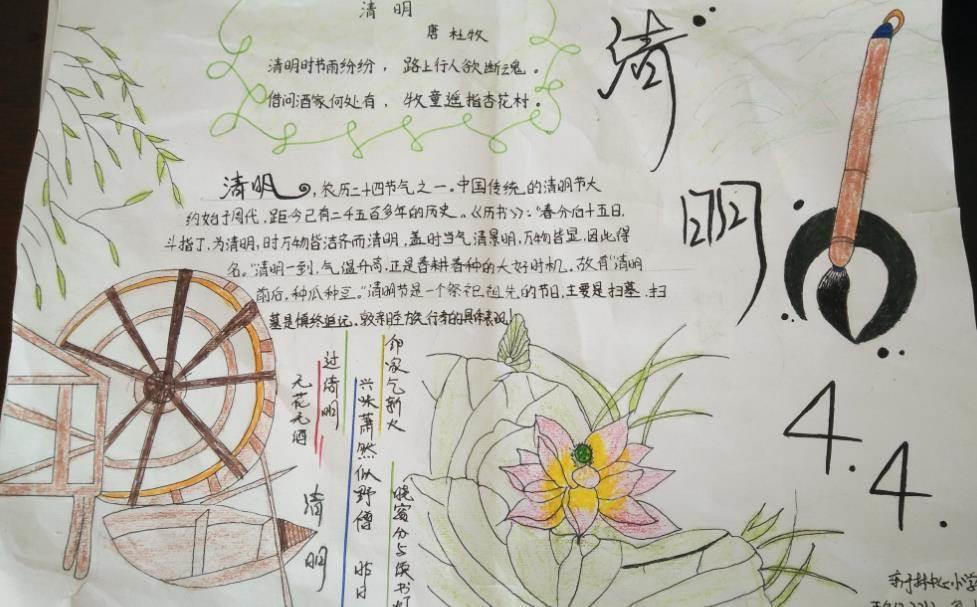 清明
唐 杜牧
清明时节雨纷纷，路上行人欲断魂。
借问酒家何处有，牧童遥指杏花村。
清明
清明，农历二十四节气之一。中国传统的清明节大
约始于周代，距今已有二千五百多年的历史。《历书》：“春分后十五日，
斗指丁，为清明，时万物皆洁齐而清明，盖时当气清景明，万物皆显，因此得
名。“清明一到，气温升高，正是春耕春种的大好时机。故有“清明
前后，种瓜种豆。”清明节是一个祭祀祖先的节日，主要是扫墓，扫
墓是慎终追远、敦亲睦族行孝的具体表现！
清明
无花无酒
过清明
兴味萧然似野僧 昨日
邻家乞新火
晓窗分与读书灯
4.4.
中心小学